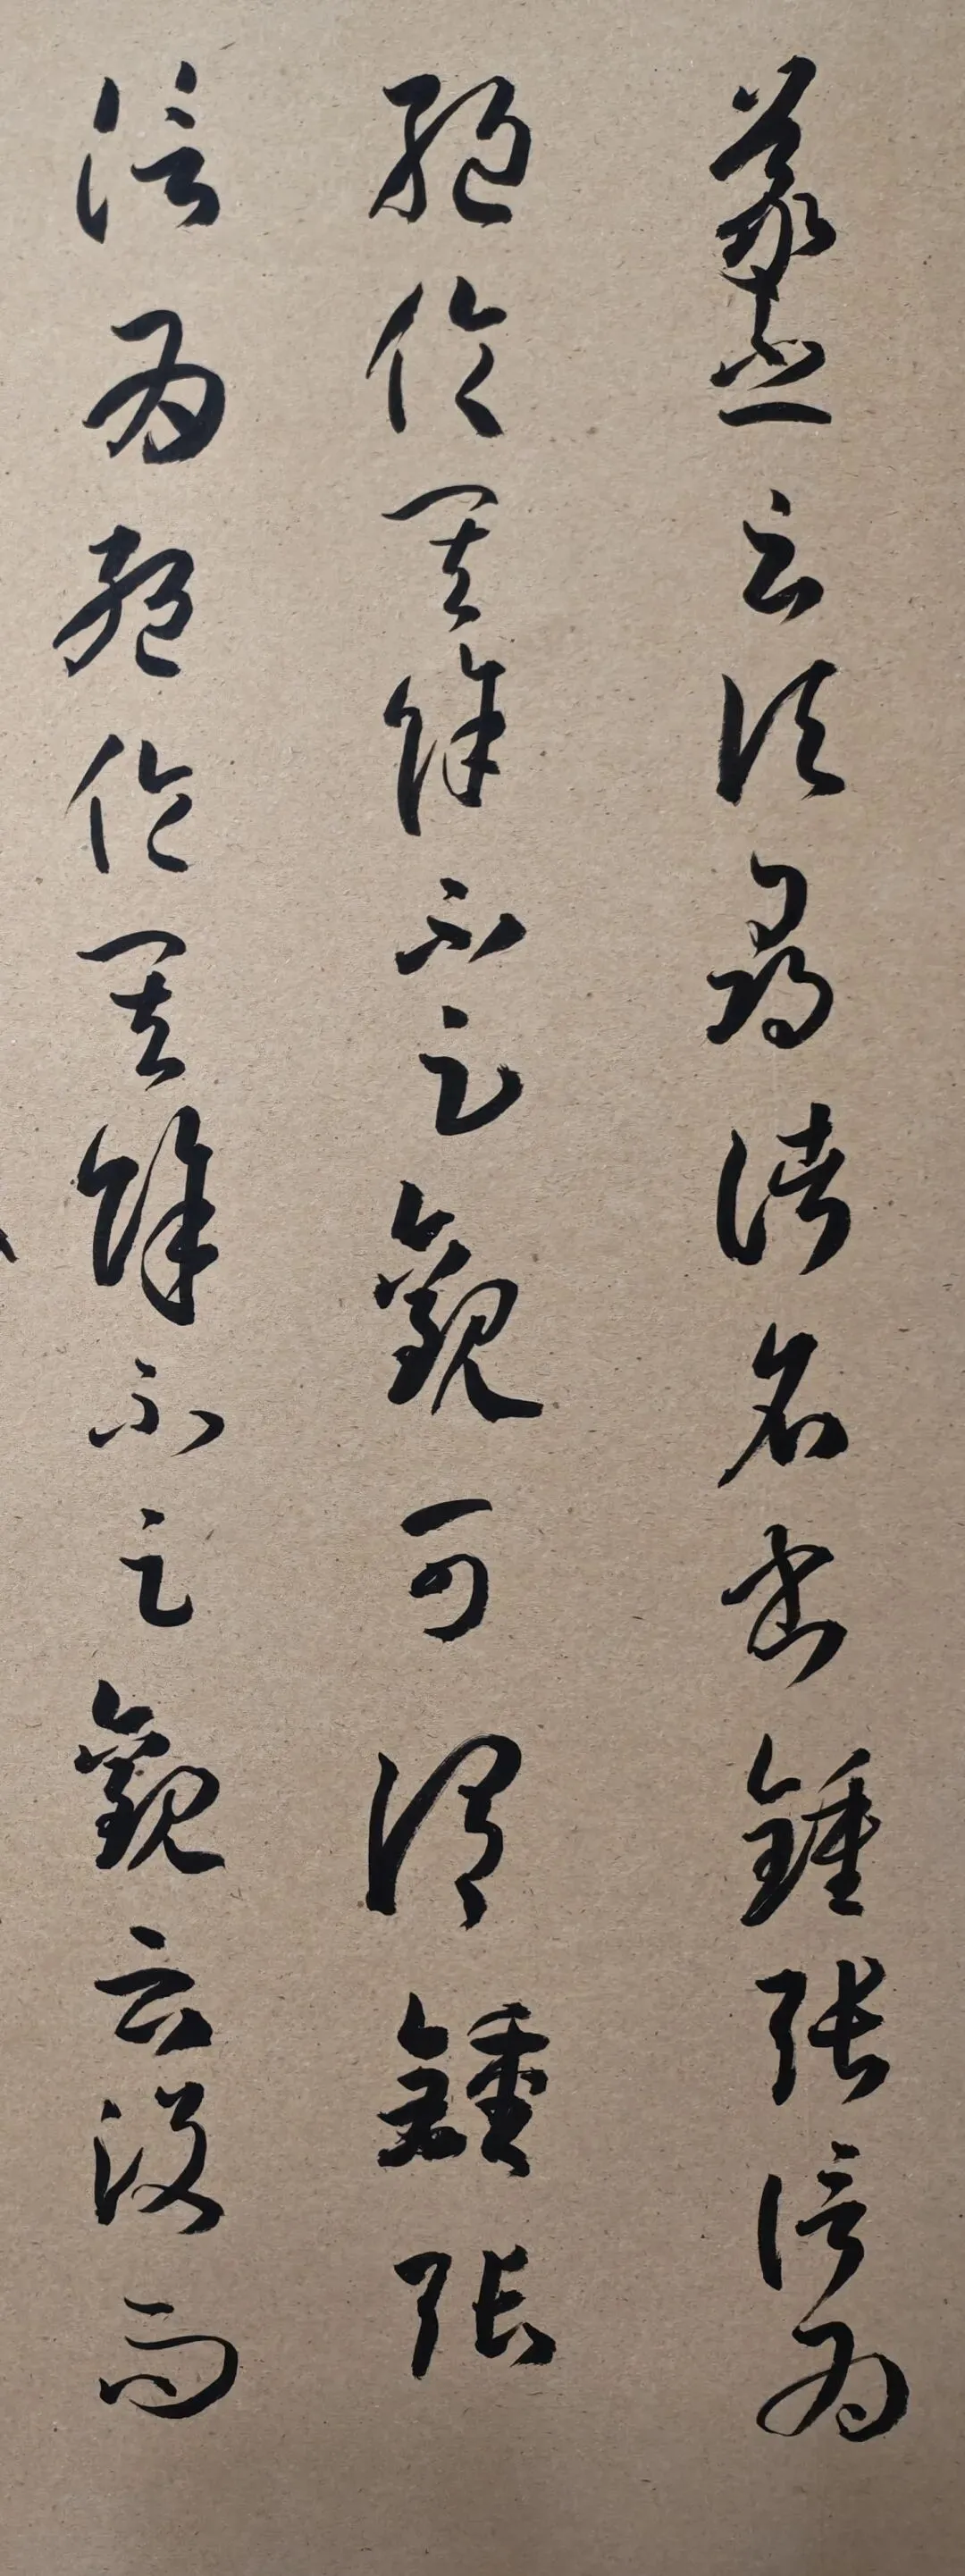 羲之云頃尋諸名書鍾張信爲
絕倫其餘不足觀可謂鍾張
信爲絕倫其餘不足觀云沒而